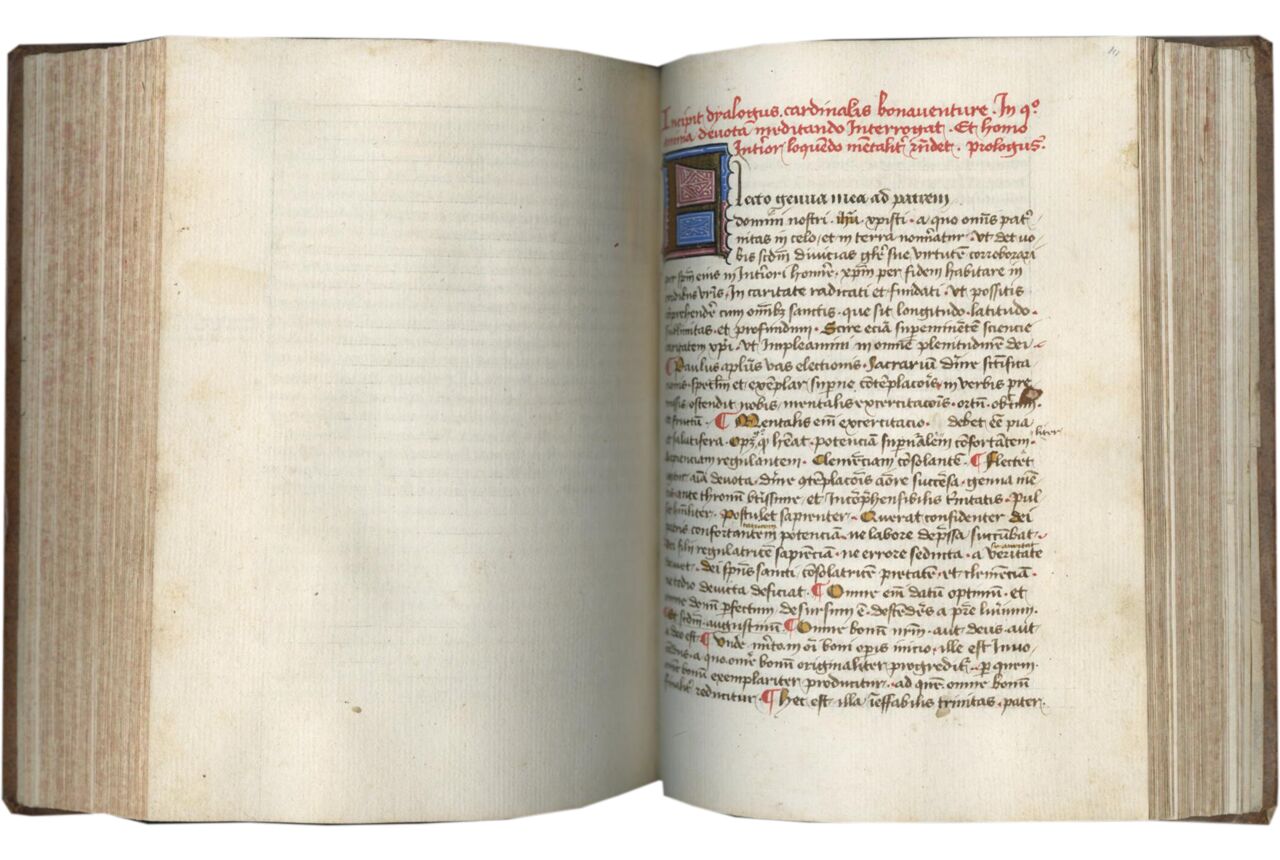 Incipit dyalogus cardinalis bonauenture. In qº
anima deuota meditando Interrogat. Et homo
Intior loquẽdo mẽtalit rñdet. prologus.
Flecto genua mea ad patrem
domini nostri ihũ xpisti. a quo omĩs pat
nitas in celo et in terra nomĩatur. Vt det uo
bis scdm diuicias glie sue virtutẽ corroborari
per spm eius in Intiori homie, xpm per fidem habitare in
cordibus vris, In caritate radicati et fundati. Vt possitis
cõprehendẽ cum omĩbꝫ sanctis. que sit longitudo. latitudo.
sublimitas. et profundum. Scire eciã supeminẽtẽ sciencie
caritatem xpi. Vt Impleamini in omnẽ plenitudinẽ dei
Paulus aplus vas electionis. Sacrariũ diuine sctifica
et exẽplar supne cõtẽplacõis, in verbis pre
missis ostendit nobis, mentalis exercitacõis. ortũ. obtum.
et fructũ. Mentalis em exercitacio. debet ẽẽ pia
liter
et salutifera. potenciã supnalem cõfortãtem.
sapienciam regulantem. Clemẽciam cõsolantẽ. Flectet
aĩa deuota. diuine cõtẽplacõis aõre succẽsa. genua mẽ
ante thronũ btissime, et Incõphensibilis tnitatis. Pul
set huĩliter. Postulet sapienter. Querat confidenter dei
patris confortantem potenciam. ne labore depssa succũbat.
dei filij regulatricẽ sapienciã. ne errore seducta. a veritate
deuiet. dei spũs sancti cõsolatricẽ pietatẽ. et clemẽciã.
ne tedio deuicta deficiat. Omne em datũ optimũ. et
omne donũ perfectum desursum ẽ. descẽdẽs a pre luminũ.
Et scdm augustinũ Omne bonũ nrm. aut deus. aut
a deo est. Vnde mito in oi boni opis inicio, ille est Inuo
a quo omẽ bonũ originaliter progredit. p quem
omẽ bonũ exemplariter producitur. ad quẽ omne bonũ
finalit reducitur. Hec est illa ieffabilis trinitas. pater.